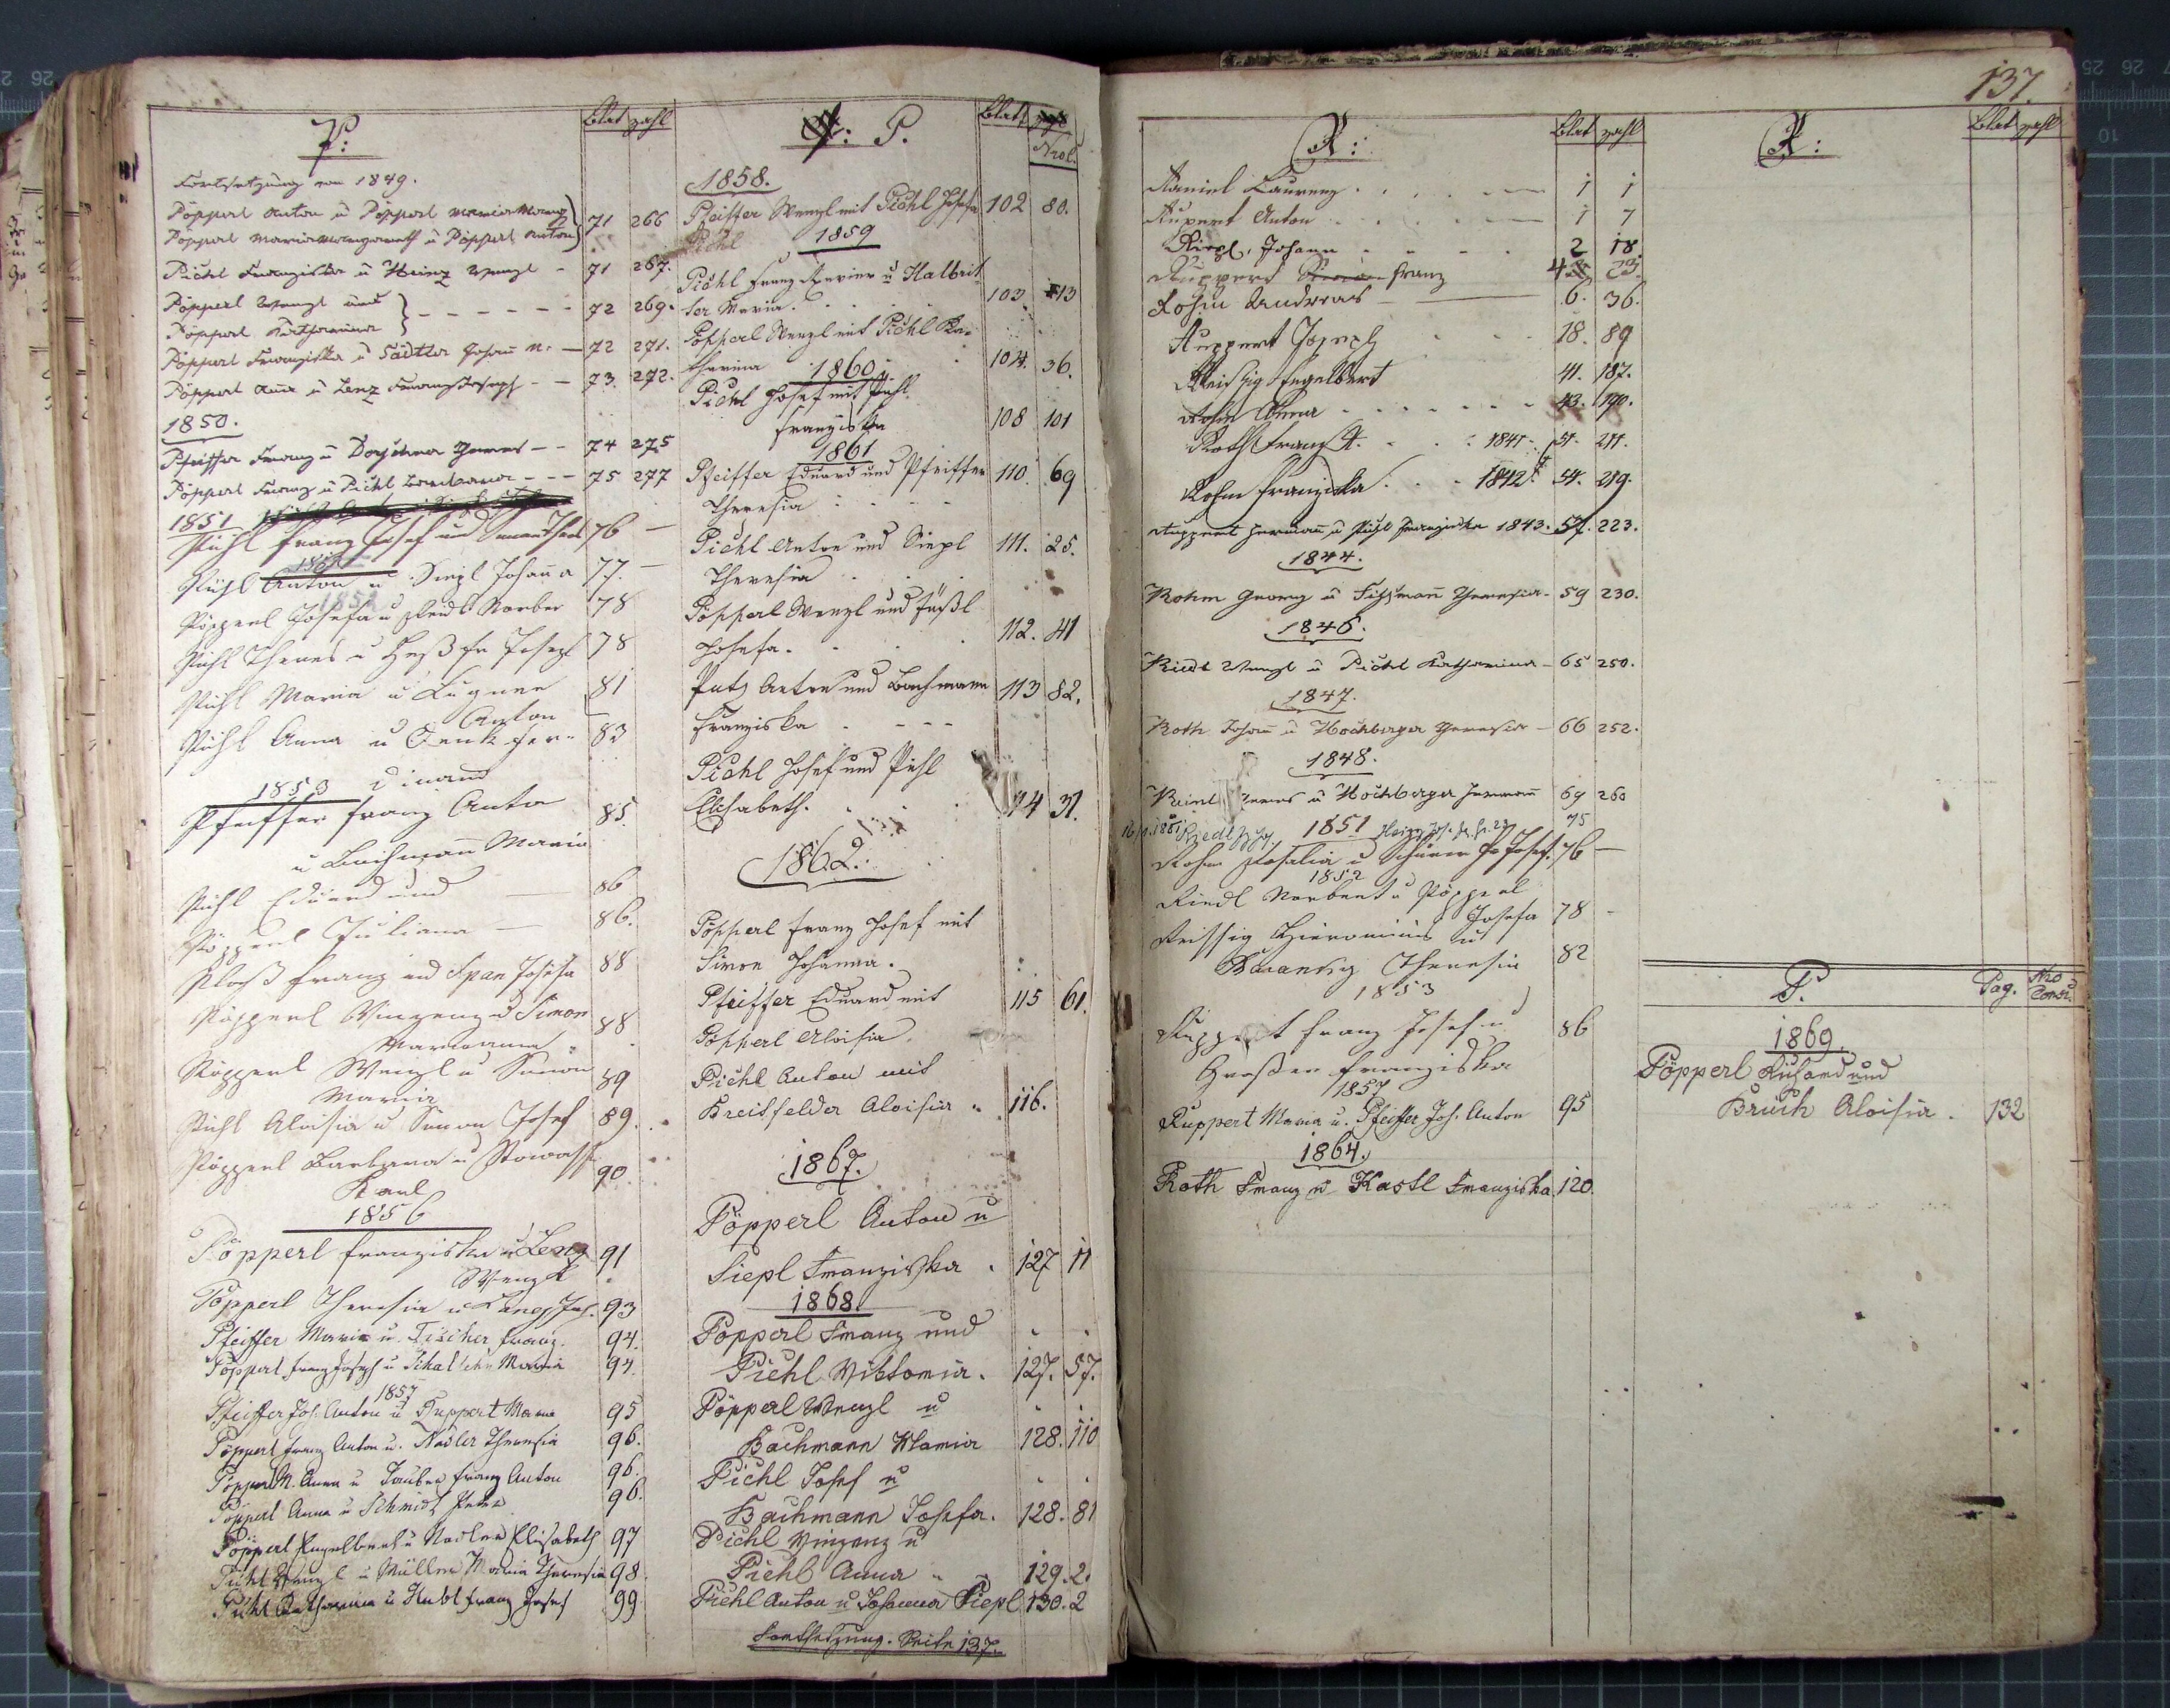 P:
Blat zahl
Fortsetzung von 1849.
Pöpperl Anton u Pöpperl Maria 71 266
Pöpperl Maria u Pöpperl Anton
Pichl Franziska u Heinz Wenzl - 71 267.
Pöpperl Wenzl und 72 269.
Pöpperl Katharina
Pöpperl Franziska u Sädtler Johañ N. - 72 271.
Pöpperl Anna u Lenz Franz Joseph - - 73. 272.
1850.
Pfeiffer Franz u - - 74 275
Pöpperl Franz u Pichl Barbara - - - 75 277
1851
Pichl Franz Josef und 76 -
Pichl Anton u Siepl Johaña 77. -
1852
Pöpperl Josefa u Riedl Norber 78
Pichl Theres u Joseph 78
Pichl Maria u Lugner 81
Anton
Pichl Anna u Fer- 83
dinand
1853
Pfeiffer Franz Anton 85
u Bachmañ Maria
Pichl Eduard und - 86
Pöpperl Juliana - 86.
Ploß Franz und Span Josefa 88
Pöpperl Vinzenz u Simon 88
Marianna
Pöpperl Wenzl u Simon 89
Maria
Pichl Aloisia u Simon Josef 89.
Pöpperl Barbara u Stowasser 90.
Karl
1856
Pöpperl Franziska u Lenz 91
Wenzl
Pöpperl Theresia u Lang Jos. 93
Pfeiffer Maria u. Tischer Franz. 94.
Pöpperl Franz Joseph u Maria 94.
1857
Pfeiffer Jos. Anton u Ruppert Maria 95
Pöpperl Franz Anton u. Nadler Theresia 96.
Pöpperl M. Anna u Tauber Franz Anton 96.
Pöpperl Anna u Schmidt Peter 96.
Pöpperl Engelbert u Nadler Elisabeth 97
Pichl Wenzl u Müller Maria Theresia 98.
Pichl Katharina u Hubl Franz Josef 99
P.
Blat
Nro C.
1858.
Pfeiffer Wenzl mit Pichl Josefa 102 80.
Pichl
1859
Pichl Franz Xavier u Halbrit
ter Maria. 103 13
Pöpperl Wenzl mit Pichl Ka-
tharina 104. 36.
1860.
Pichl Josef mit Pichl
Franziska 108 101
1861
Pfeiffer Eduard und Pfeiffer 110. 69
Theresia
Pichl Anton und Siepl 111. 25.
Theresia
Pöpperl Wenzl und Füßl
Josefa. 112. 41
Putz Anton und Bachmann 113 82.
Franziska - - -
Pichl Josef und Pichl
Elisabeth. 114 31.
1862.
Pöpperl Franz Josef mit
Simon Johanna.
Pfeiffer Eduard mit 115 61.
Pöpperl Aloisia.
Pichl Anton mit
Kreitfelder Aloisia 116.
1867.
Pöpperl Anton u
Siepl Franziska. 127 11
1868.
Pöpperl Franz und
Pichl Viktoria. 127. 57.
Pöpperl Wenzl u
Bachmann Maria 128. 110
Pichl Josef u
Bachmann Josefa. 128. 81
Pichl Vinzenz u
Pichl Anna 129. 2.
Pichl Anton u Johanna Siepl 130. 2
Fortsetzung. Seite 137.
137.
R:
Blat zahl
Raniel Laurenz 1 1
Rupert Anton 1 7
Riepl, Johann 2 18
Ruppert Simon Franz 4 23.
Rohm Andreas 6. 36.
Ruppert Joseph 18. 89
Reissig Engelbert 41. 187.
Rohm Anna 43. 190.
Roth Franz 1841. 51. 211.
Rohm Franziska 1842 54. 219.
Ruppert Hermañ u Pichl Franziska 1843. 57. 223.
1844.
Rohm Georg u Theresia - 59 230.
1846.
Riedl Wenzl u Pichl Katharina - 65 250.
1847.
Roth Johañ u Hochberger Theresia - 66 252.
1848.
u Hochberger Hermañ 69 260
1851 75
Rohm Rosalia u Josef. 76 -
1852
Riedl Norbert u Pöpperl
Josefa 78 -
Reissig Hieronimus u
Theresia 82
1853
Ruppert Franz Josef u 86
Großer Franziska
1857
Ruppert Maria u. Pfeiffer Jos. Anton 95
1864.
Roth Franz u Kastl Franziska 120.
R:
Blat zahl
P. Pag. Nro Cons.
1869.
Pöpperl Richard und
Bruch Aloisia. 132